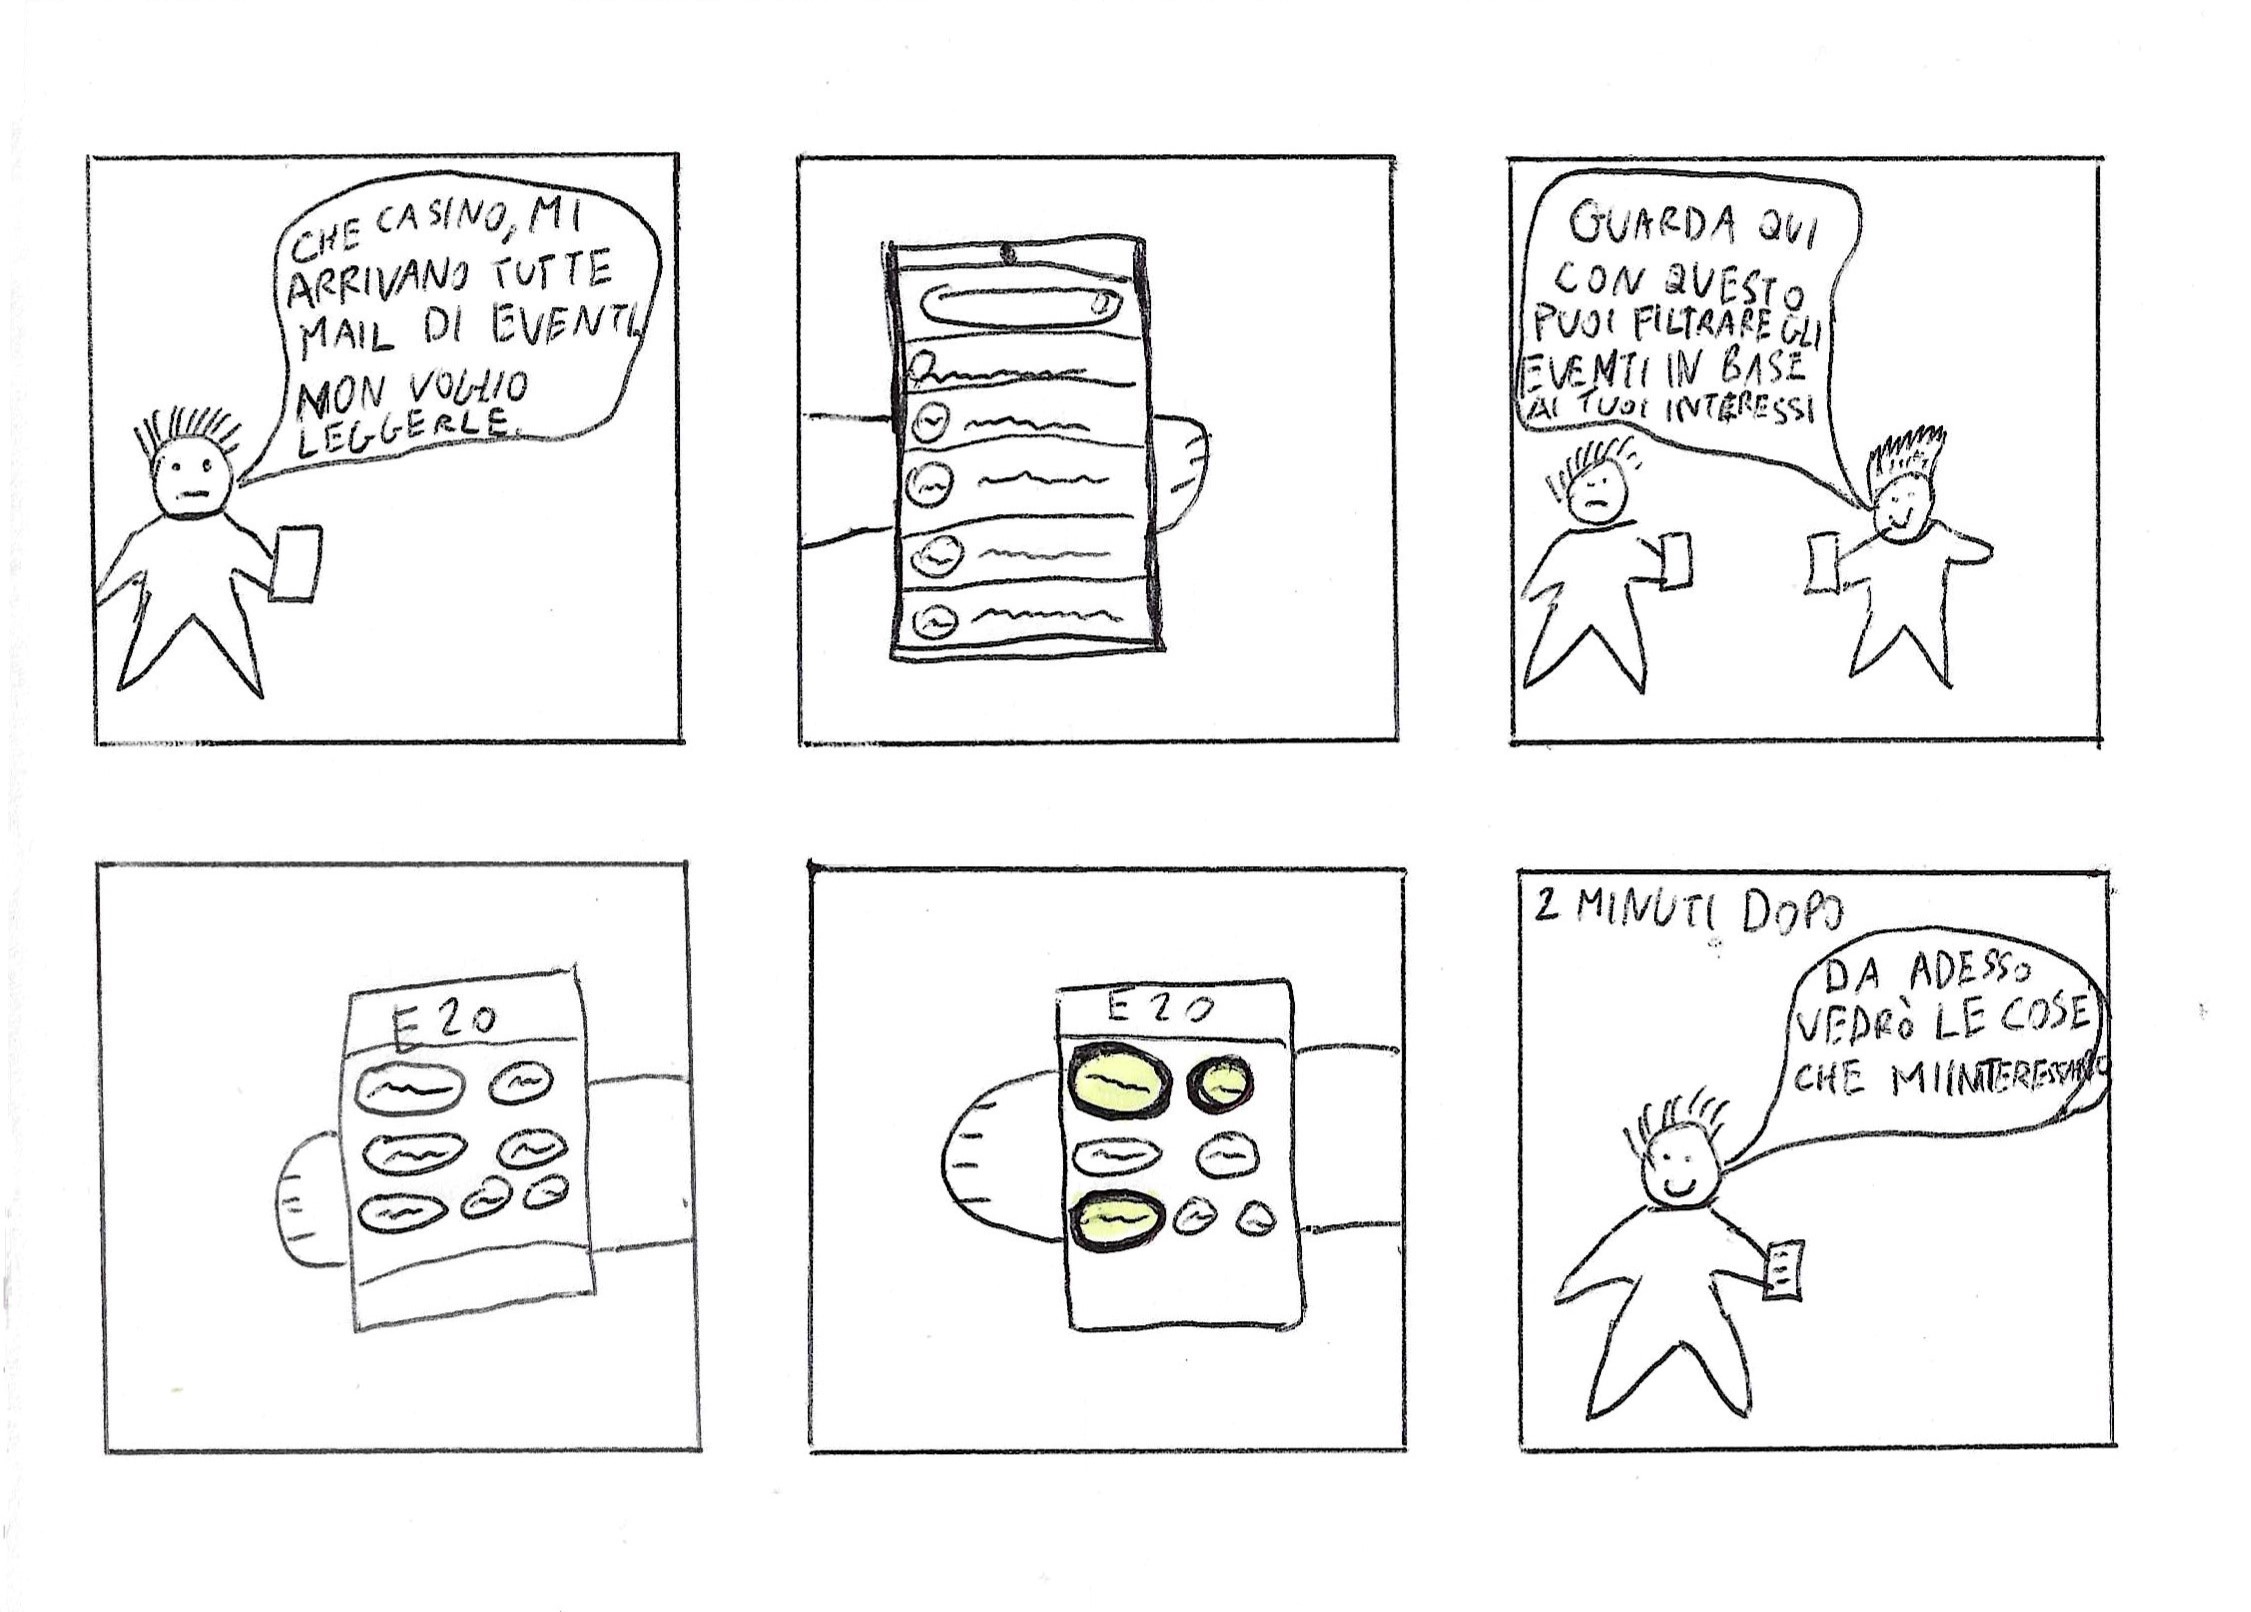 CHE CASINO, MI
ARRIVANO TUTTE
MAIL DI EVENTI,
NON VOGLIO
LEGGERLE.
GUARDA QUI
CON QUESTO
PUOI FILTRARE GLI
EVENTI IN BASE
AI TUOI INTERESSI
E20
E20
2 MINUTI DOPO
DA ADESSO
VEDRÒ LE COSE
CHE MI INTERESSANO